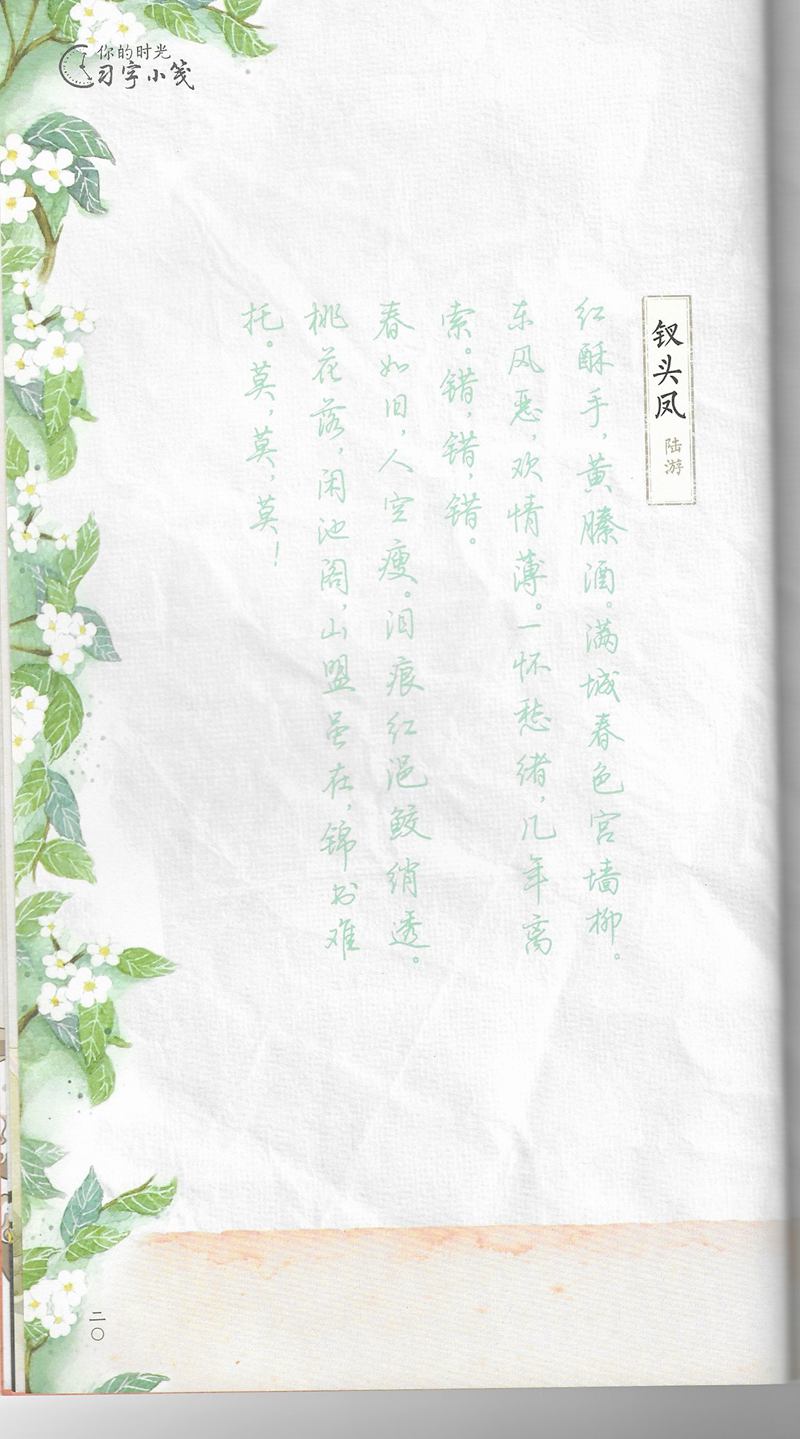 你的时光
习字小笺
钗头凤
陆游
红酥手，黄縢酒。满城春色宫墙柳。
东风恶，欢情薄。一怀愁绪，几年离
索。错，错，错。
春如旧，人空瘦。泪痕红浥鲛绡透。
桃花落，闲池阁，山盟虽在，锦书难
托。莫，莫，莫！
二〇